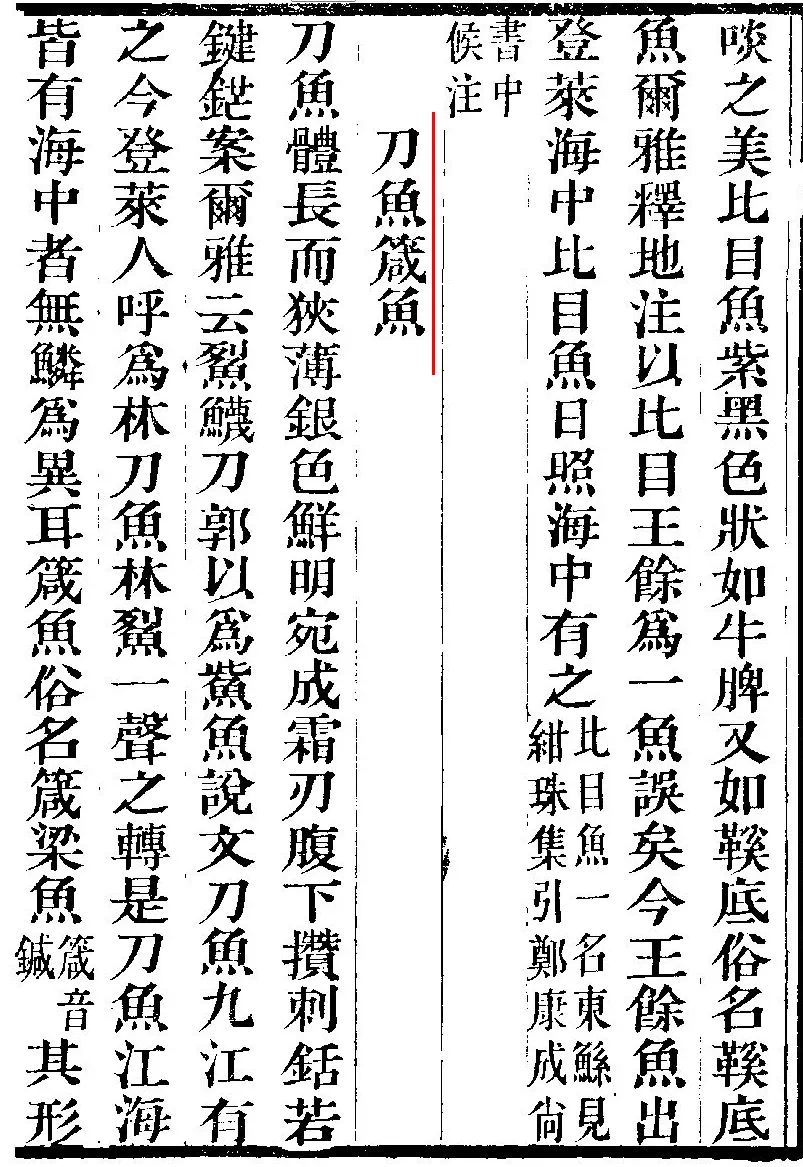 啖之美比目魚紫黑色狀如牛脾又如鞵底俗名鞵底
魚爾雅釋地注以比目王餘爲一魚誤矣今王餘魚出
登萊海中比目魚日照海中有之比目魚一名東鰷見紺珠集引鄭康成尙
書中候注
刀魚箴魚
刀魚體長而狹薄銀色鮮明宛成霜刃腹下攢刺銛若
鍵鋩案爾雅云鮤鱴刀郭以爲鮆魚說文刀魚九江有
之今登萊人呼爲林刀魚林鮤一聲之轉是刀魚江海
皆有海中者無鱗爲異耳箴魚俗名箴梁魚箴音鍼其形